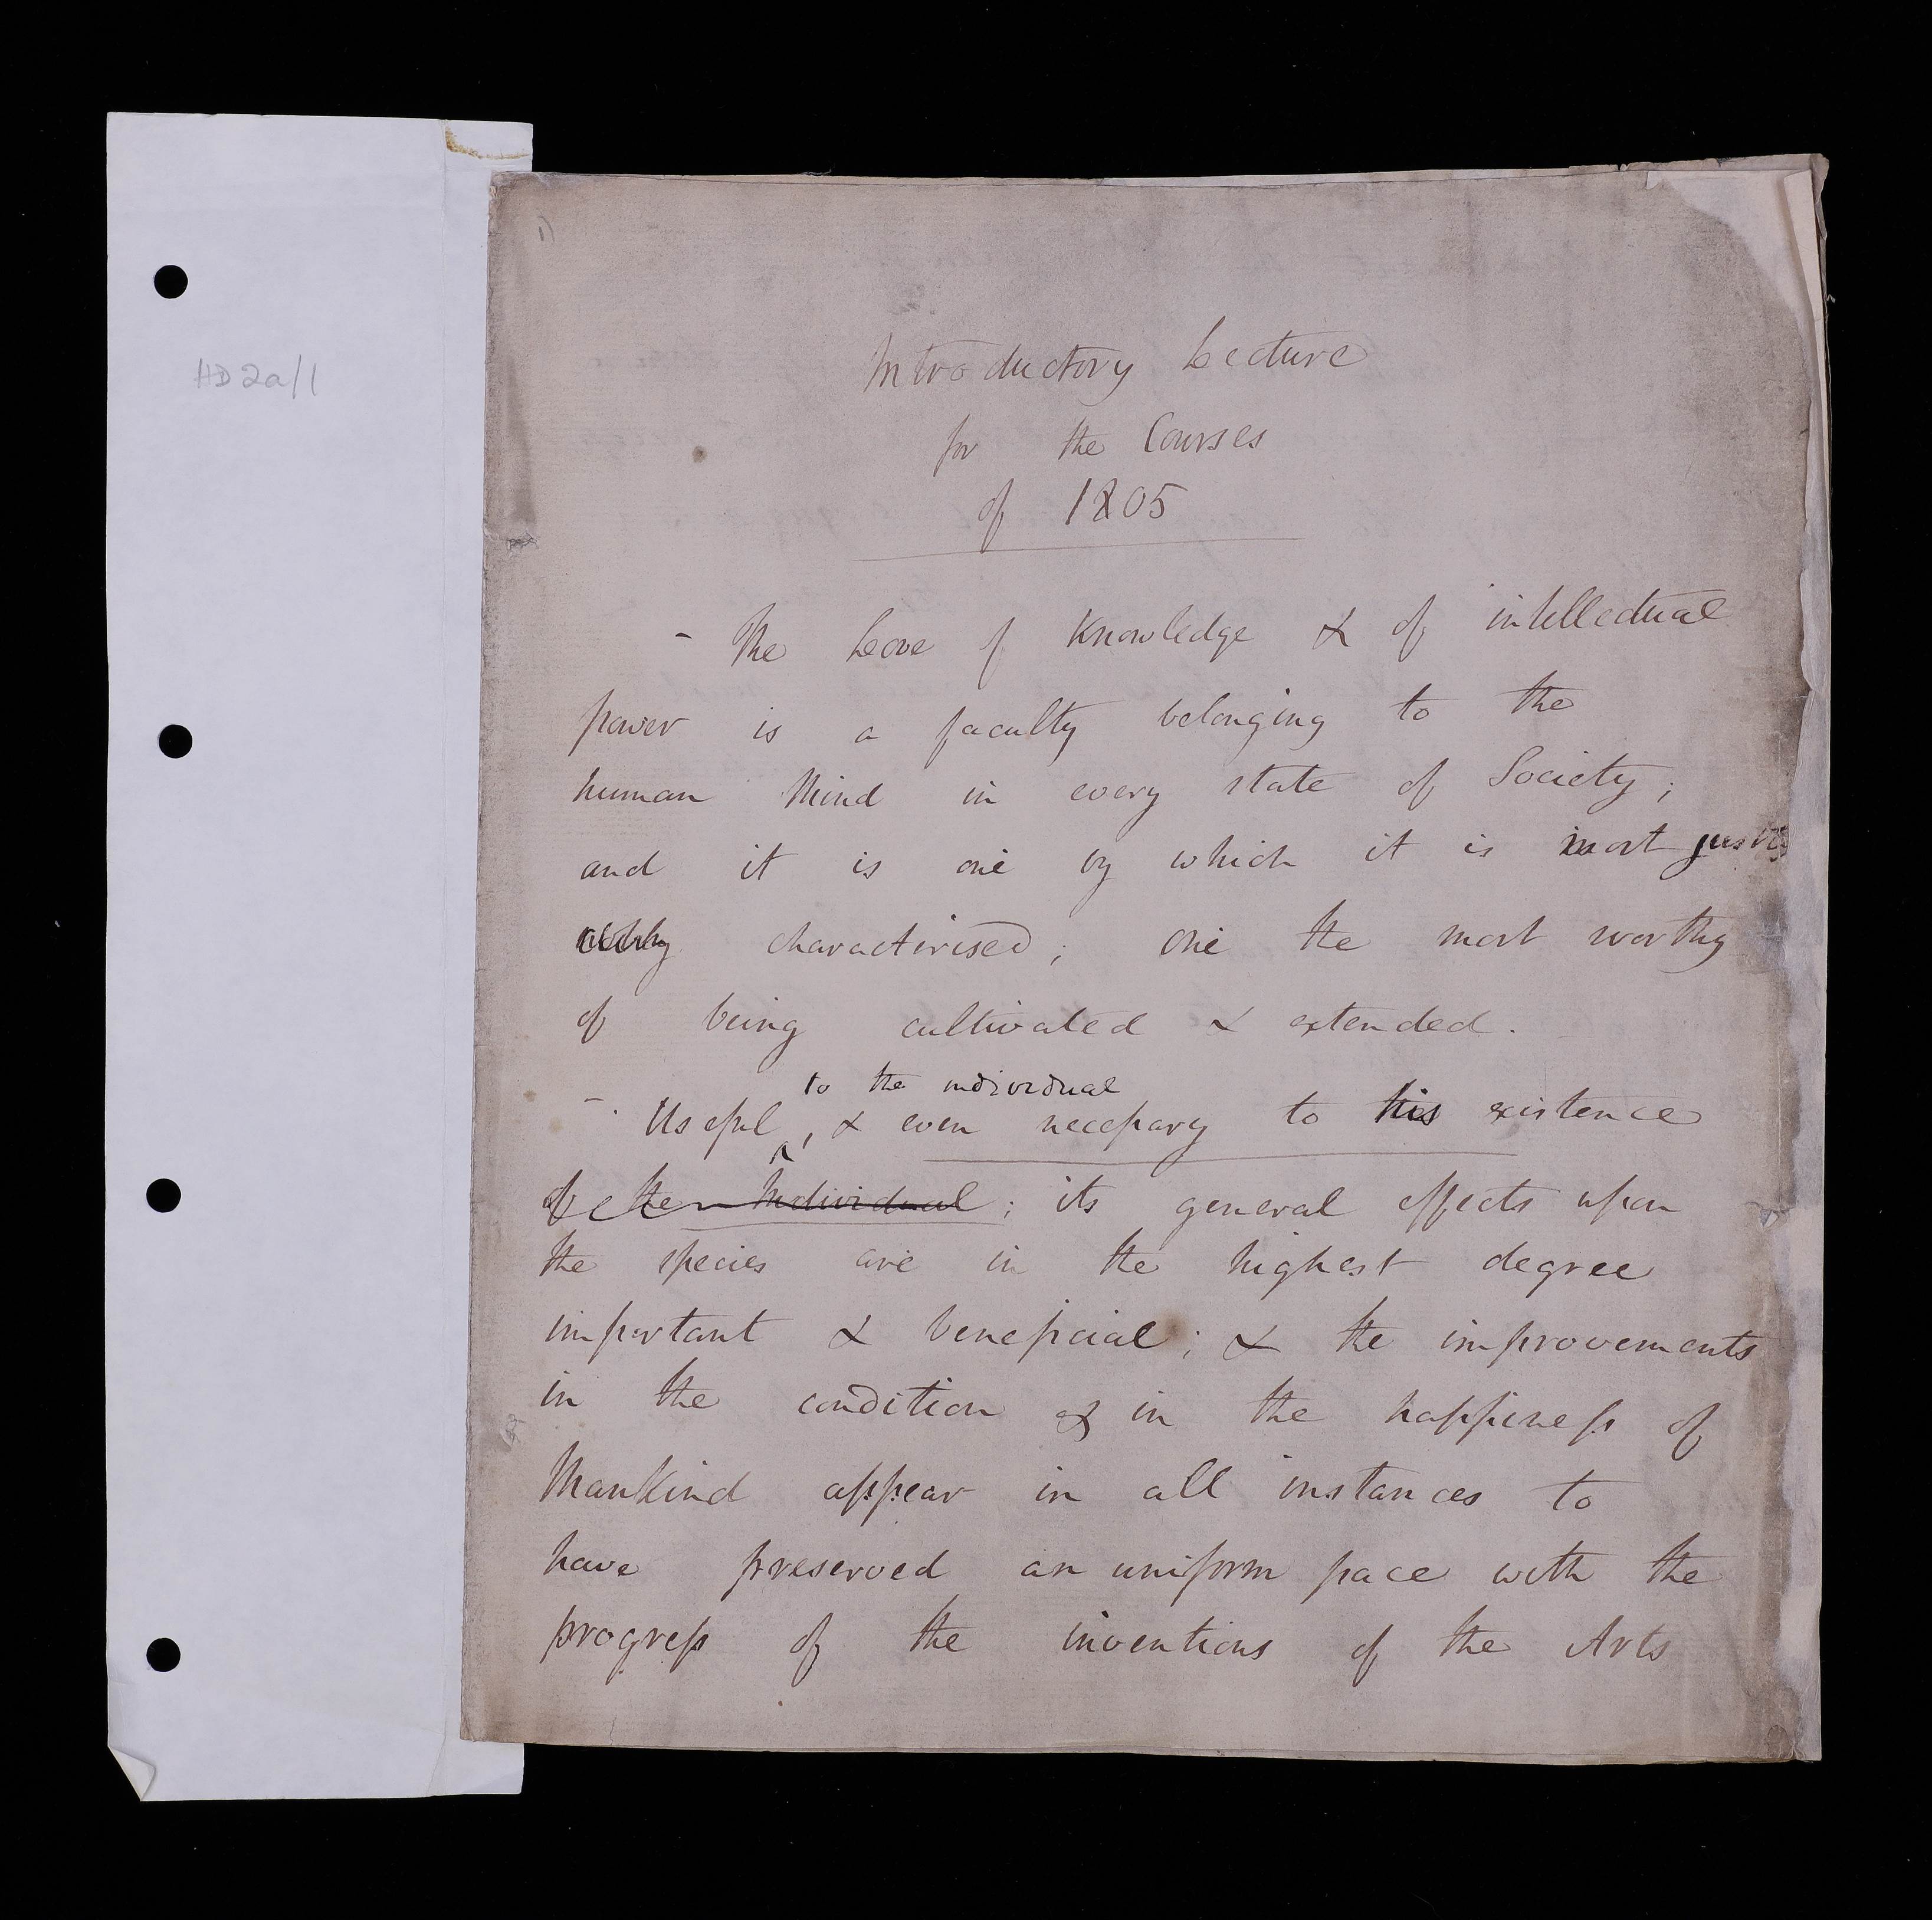 HD2a/1
1)
Introductory Lecture
for the Courses
of 1805
- The Love of Knowledge & of intellectual
power is a faculty belonging to the
human Mind in every state of Society;
and it is one by which it is most justly
characterised; one the most worthy
of being cultivated & extended.
to the individual
- Useful, & even necessary to his existence
of the Individual; its general effects upon
the species are in the highest degree
important & beneficial; & the improvements
in the condition & in the happiness of
Mankind appear in all instances to
have preserved an uniform pace with the
progress of the inventions of the Arts